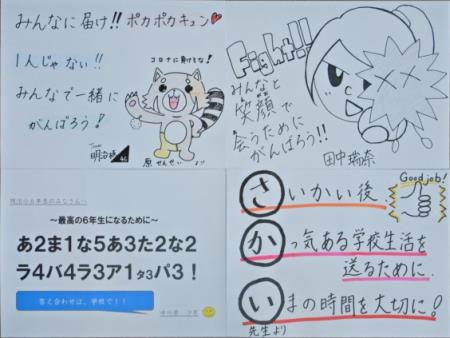 みんなに届け!! ポカポカキュン
1人じゃない!!
コロナに負けるな!
みんなで一緒に
がんばろう!
原せんせい より
Fight!!
みんなと
笑顔で
会うために
がんばろう!!
田中瑞奈
～最高の6年生になるために～
あ2ま1な5あ3た2な2
ラ4バ4ラ3ア1タ3パ3！
答え合わせは、学校で！！
Good job!
さいかい後、
かっ気ある学校生活を
送るために、
いまの時間を大切に!
先生より